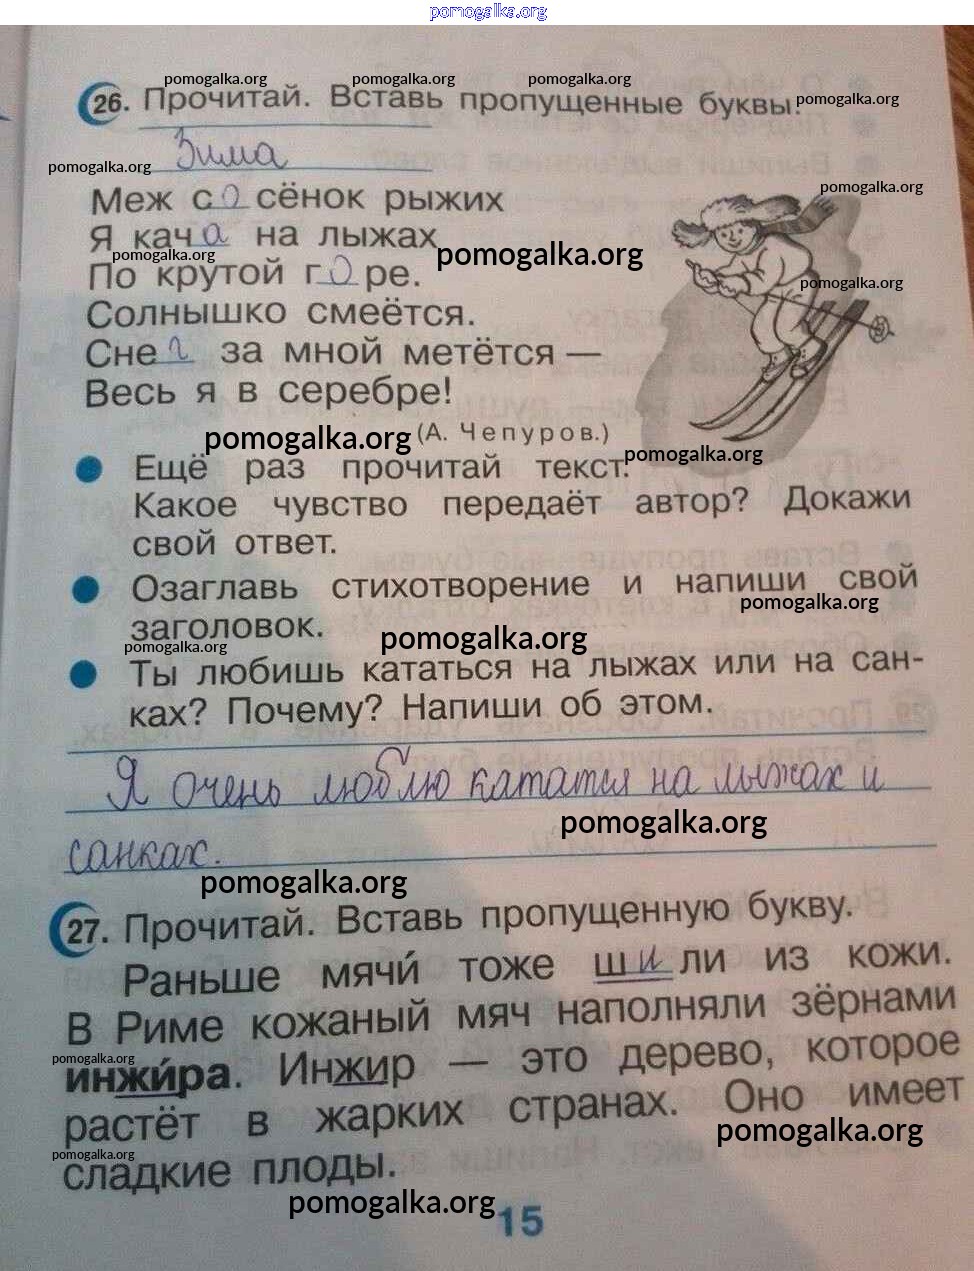 pomogalka.org
pomogalka.org pomogalka.org pomogalka.org
26. Прочитай. Вставь пропущенные буквы.
pomogalka.org
Зима
pomogalka.org
pomogalka.org
Меж с о сёнок рыжих
Я кач а на лыжах
pomogalka.org
pomogalka.org
По крутой г о ре.
pomogalka.org
Солнышко смеётся.
Сне г за мной метётся —
Весь я в серебре!
pomogalka.org
(А. Чепуров.)
pomogalka.org
Ещё раз прочитай текст.
Какое чувство передаёт автор? Докажи
свой ответ.
Озаглавь стихотворение и напиши свой
pomogalka.org
заголовок.
pomogalka.org
pomogalka.org
Ты любишь кататься на лыжах или на сан-
ках? Почему? Напиши об этом.
Я очень люблю кататся на лыжах и
pomogalka.org
санках.
pomogalka.org
27. Прочитай. Вставь пропущенную букву.
Раньше мячи́ тоже ш и ли из кожи.
В Риме кожаный мяч наполняли зёрнами
pomogalka.org
инжи́ра. Инжир — это дерево, которое
растёт в жарких странах. Оно имеет
pomogalka.org
pomogalka.org
сладкие плоды.
pomogalka.org
15